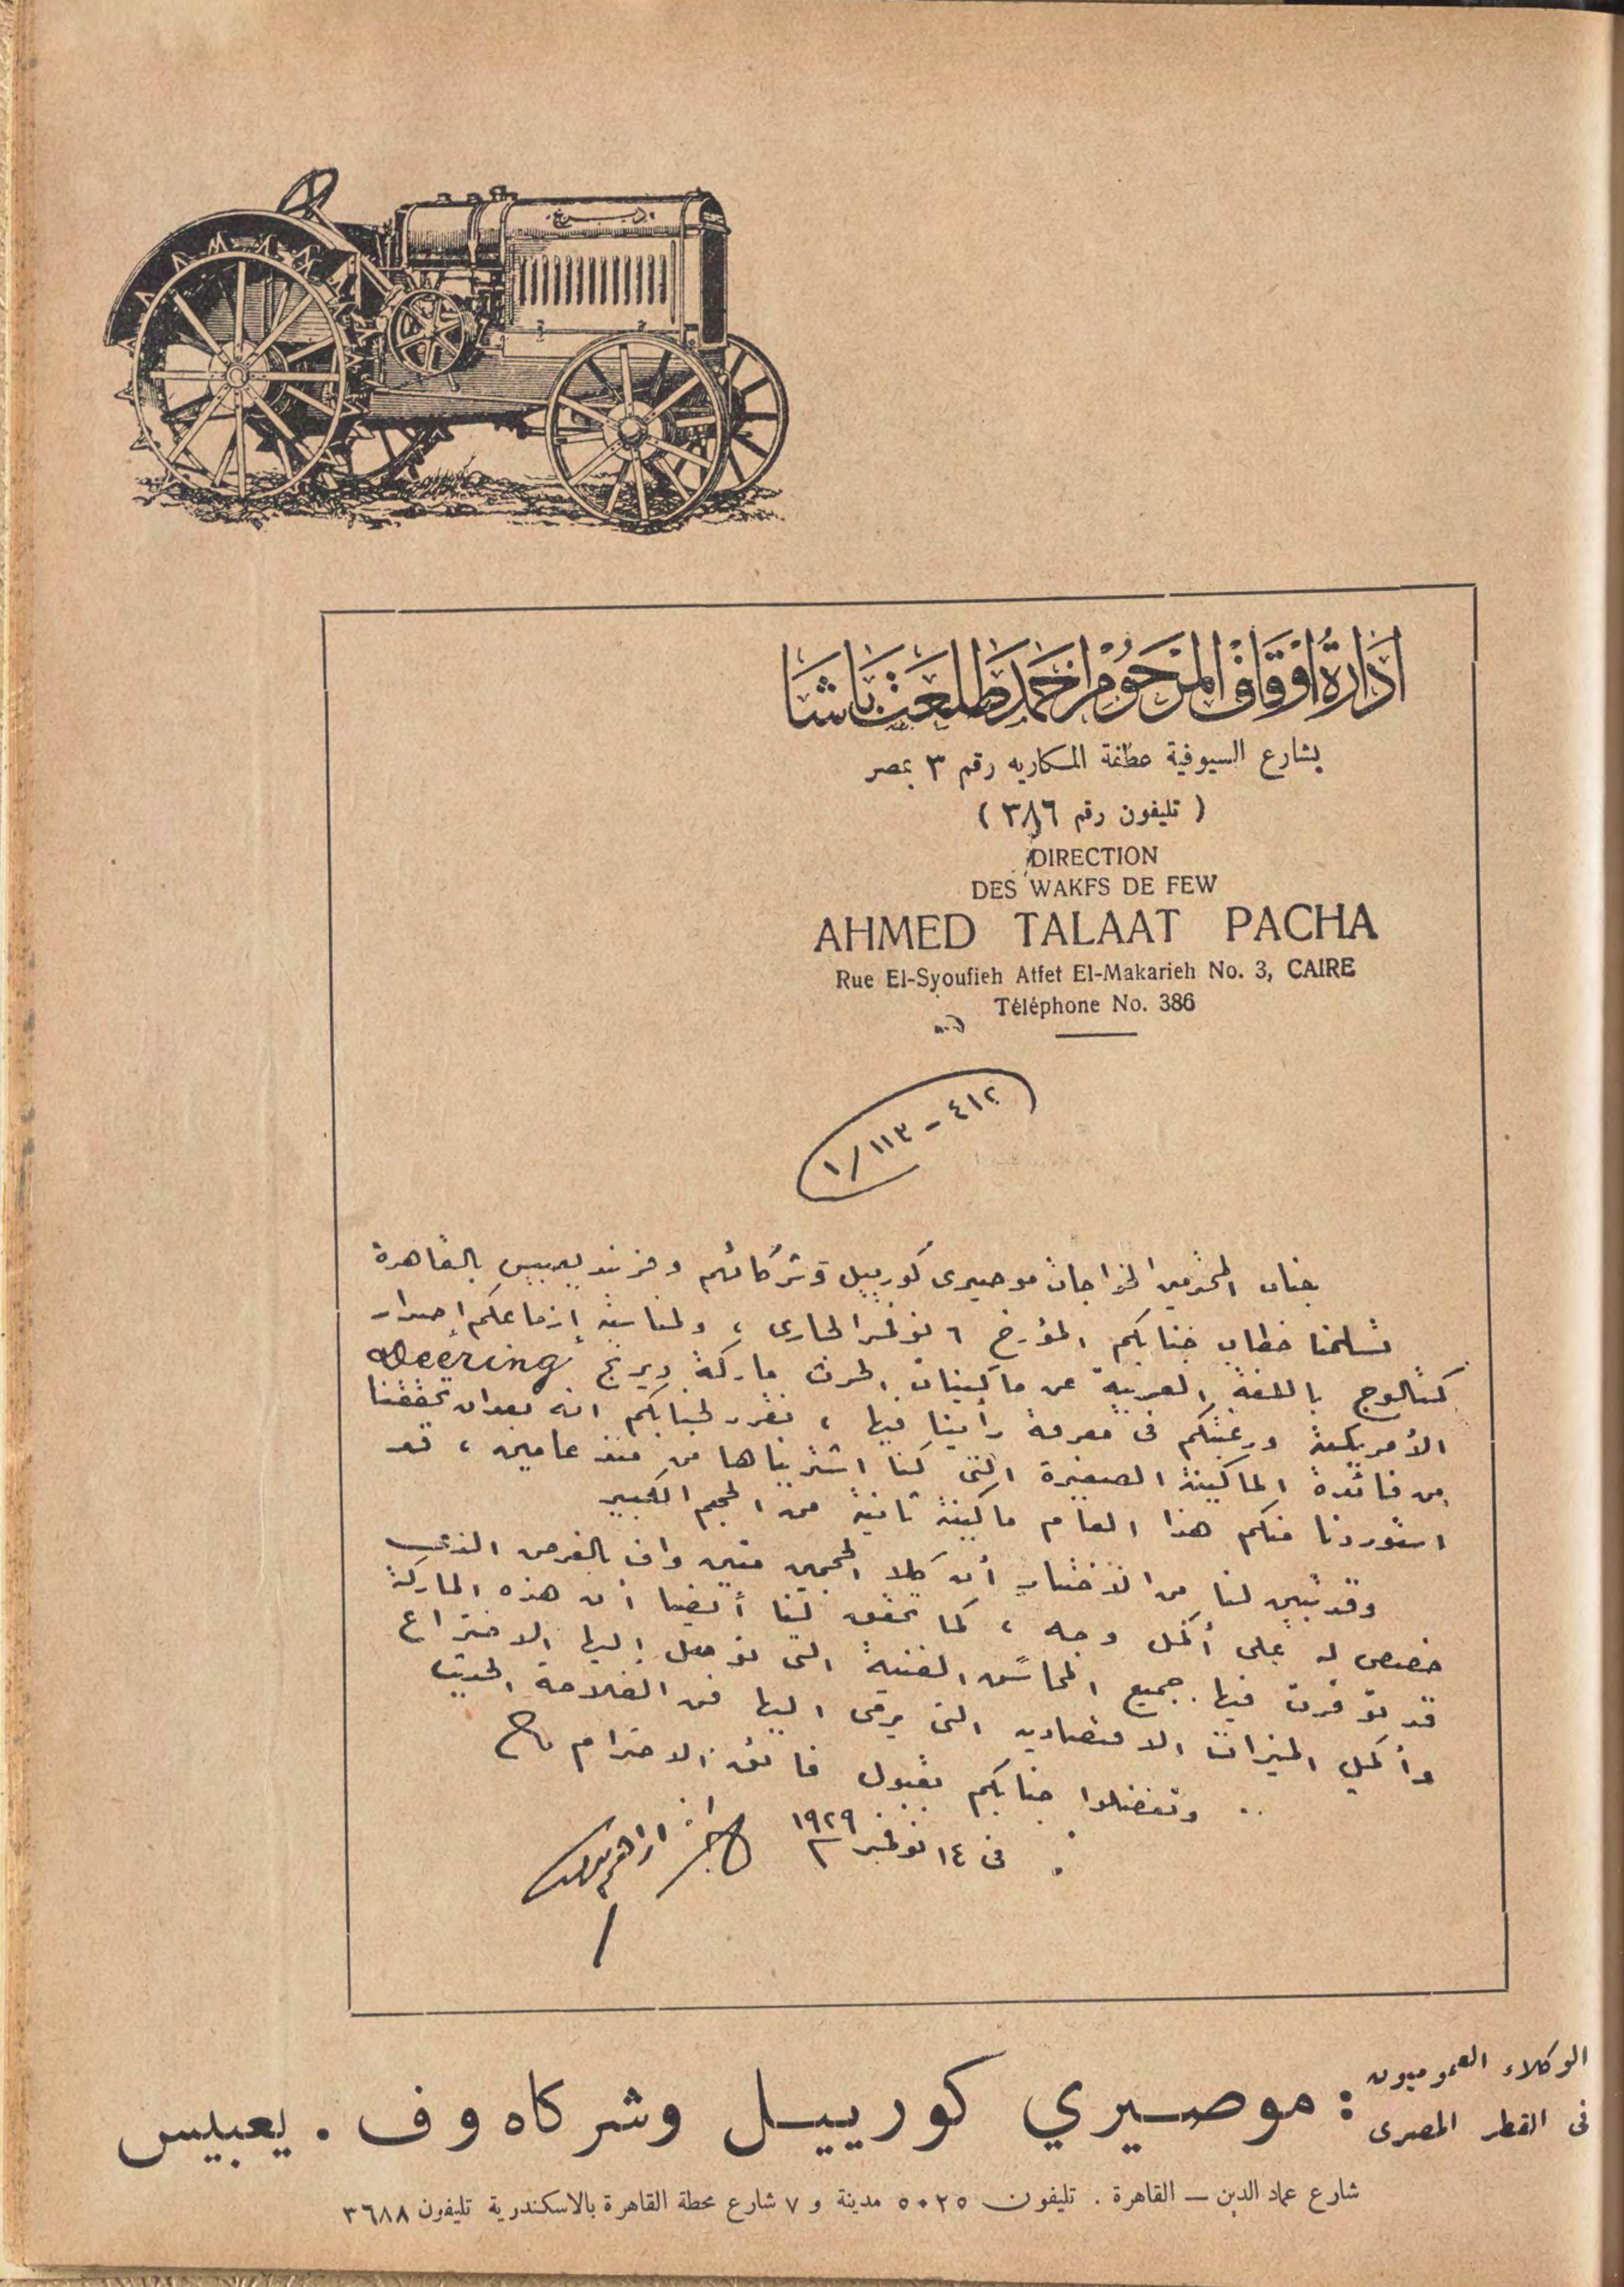 ديرنج
ادارة اوقاف المرحوم احمد طلعت باشا
بشارع السيوفية عطفة المكاريه رقم ٣ بمصر
( تليفون رقم ٣٨٦ )
DIRECTION
DES WAKFS DE FEW
AHMED TALAAT PACHA
Rue El-Syoufieh Atfet El-Makarieh No. 3, CAIRE
Téléphone No. 386
٤١٢ - ١١٣ / ١
جناب المحترمين الخواجات موصيرى كورييل وشركائهم وفرنند يعبيس بالقاهرة
تسلمنا خطاب جنابكم المؤرخ ٦ نوفمبر الجارى ، ولمناسبة إزماعكم إصدار
كتالوج باللغة العربية عن ماكينات الحرث ماركة ديرنج Deering
الأمريكية ورغبتكم فى معرفة رأينا فيها ، نقرر لجنابكم انه بعد ان تحققنا
من فائدة الماكينة الصغيرة التى كنا اشتريناها من منذ عامين ، قد
استوردنا منكم هذا العام ماكينة ثانية من الحجم الكبير
وقد تبين لنا من الاختبار أن كلا الحجمين متين واف بالغرض الذى
خصص له على أكمل وجه ، كما تحقق لنا أيضا أن هذه الماركة
قد توفرت فيها جميع المحاسن الفنية التى توصل إليها الاختراع
وأكمل الميزات الاقتصاديه التى يرمى اليها فن الفلاحة الحديث
وتفضلوا جنابكم بقبول فائق الاحترام
فى ١٤ نوفمبر ١٩٢٩
الوكلاء العموميون
فى القطر المصرى : موصيري كورييل وشركاه وف . يعبيس
شارع عماد الدين — القاهرة . تليفون ٥٠٢٥ مدينة و ٧ شارع محطة القاهرة بالاسكندرية تليفون ٣٦٨٨